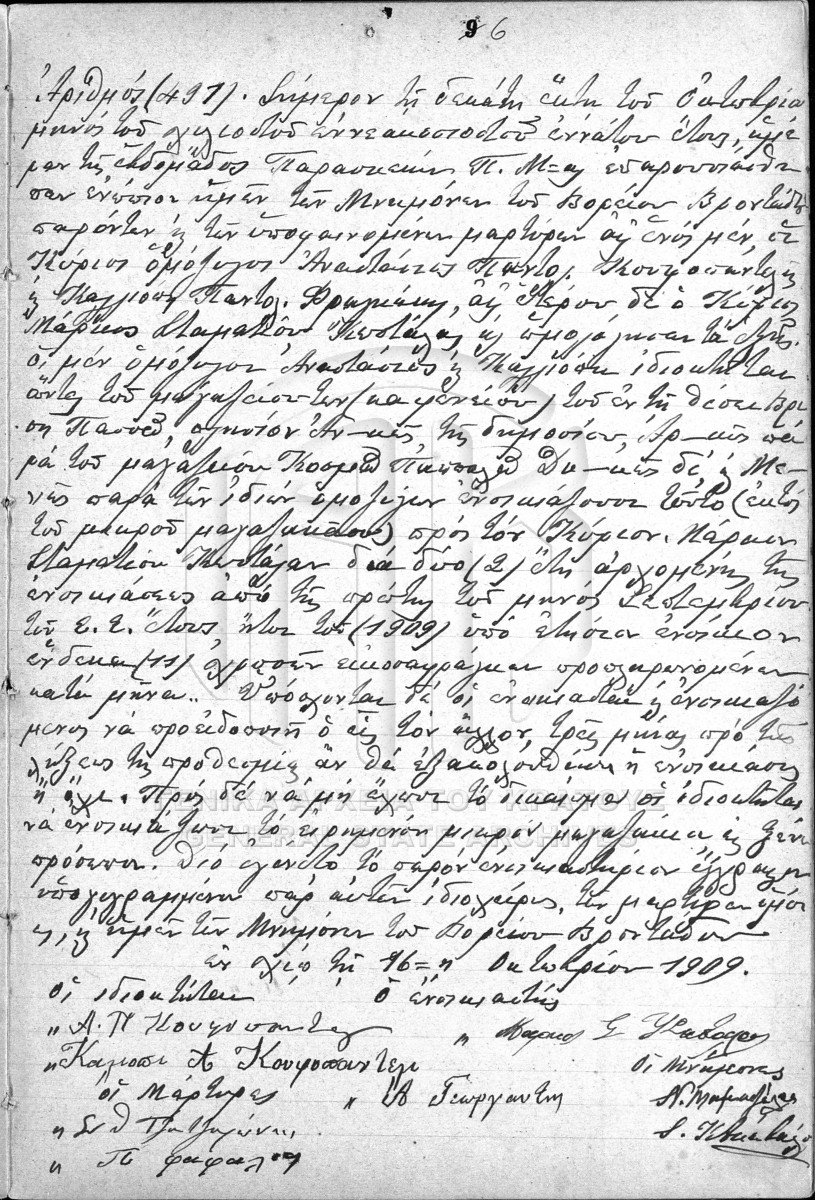 96
Ἀριθμός (491). Σήμερον τῇ δεκάτῃ ἕκτῃ τοῦ Ὀκτωβρίου
μηνὸς τοῦ χιλιοστοῦ ἐννεακοσιοστοῦ ἐννάτου ἔτους, ἡμέ
ραν τῆς ἑβδομάδος Παρασκευὴν Π. Μ=ας ἐπαρουσιάσθη
σαν ἐνώπιον ἡμῶν τῶν Μνημόνων τοῦ Βορείου Βροντάδου
παρόντων καὶ τῶν ὑποφαινομένων μαρτύρων ἀφ' ἑνὸς μὲν, οἱ
Κύριοι ὁμόζυγοι Ἀναστάσιος Παντ. Κουφοπαντελῆς
ἡ Καλλιόπη Παντελ. Φραγκάκη, ἀφ' ἑτέρου δὲ ὁ Κύριος
Μάρκος Σταματίου καὶ ὡμολόγησαν τὰ ἑξῆς.
οἱ μὲν ὁμόζυγοι Ἀναστάσιος ἡ Καλλιόπη ἰδιοκτῆται
ὄντες τοῦ μαγαζείου των (καφενείου) τοῦ ἐν τῇ θέσει Βρύ
ση Πασᾶ, πλησίον Ἀν-κῶς, τῆς δημοσίου, Ἀρ-κῶς πα
ρὰ τοῦ μαγαζείου Κοσμᾶ Δυ-κῶς δὲ ἡ Με-
νῆς παρὰ τῶν ἰδίων ὁμοζύγων ἐνοικιάζουσι τοῦτο (ἐκτὸς
τοῦ μικροῦ μαγαζακίου) πρὸς τὸν Κύριον Μάρκον
Σταματίου διὰ δύο (2) ἔτη ἀρχομένης τῆς
ἐνοικιάσεως ἀπὸ τῆς πρώτης τοῦ μηνὸς Σεπτεμβρίου
τοῦ Ε. Ε. ἔτους ἤτοι τοῦ (1909) ὑπὸ ἐτήσιον ἐνοίκιον
ἕνδεκα (11) χρυσῶν εἰκοσαφράγκων προπληρωνομένων
κατὰ μῆνα.. Ὑπόσχονται δὲ οἱ ἐνοικιασταὶ ἡ ἐνοικιαζό
μενος νὰ προειδοποιῇ ὁ εἷς τὸν ἄλλον τρεῖς μῆνας πρὸ τῆς
λήξεως τῆς προθεσμίας ἂν θὰ ἐξακολουθήσῃ ἡ ἐνοικίασις
ἢ ὄχι. Πρὸς δὲ νὰ μὴ ἔχουν τὸ δικαίωμα οἱ ἰδιοκτῆται
νὰ ἐνοικιάζουν τὸ εἰρημένον μικρὸν μαγαζάκιον εἰς ξένον
πρόσωπον. Διὸ ἐγένετο τὸ παρὸν ἐνοικιαστήριον ἔγγραφον
ὑπογεγραμμένον παρ' αὐτῶν ἰδιοχείρως, τῶν μαρτύρων
ἡμῶν τῶν Μνημόνων τοῦ Βορείου Βροντάδου
Ἐν Χίῳ τῇ 16=ῃ Ὀκτωβρίου 1909.
οἱ ἰδιοκτῆται ὁ ἐνοικιαστής
" Α. Π Κουφοπαντελῆς " Μαρκος Σ
" Καλιοπι Α Κουφοπαντελι Οἱ Μνήμονες
οἱ Μάρτυρες " Α Γεωργαντης
"
" Π
ΓΕΝΙΚΑ ΑΡΧΕΙΑ ΤΟΥ ΚΡΑΤΟΥΣ
GENERAL STATE ARCHIVES